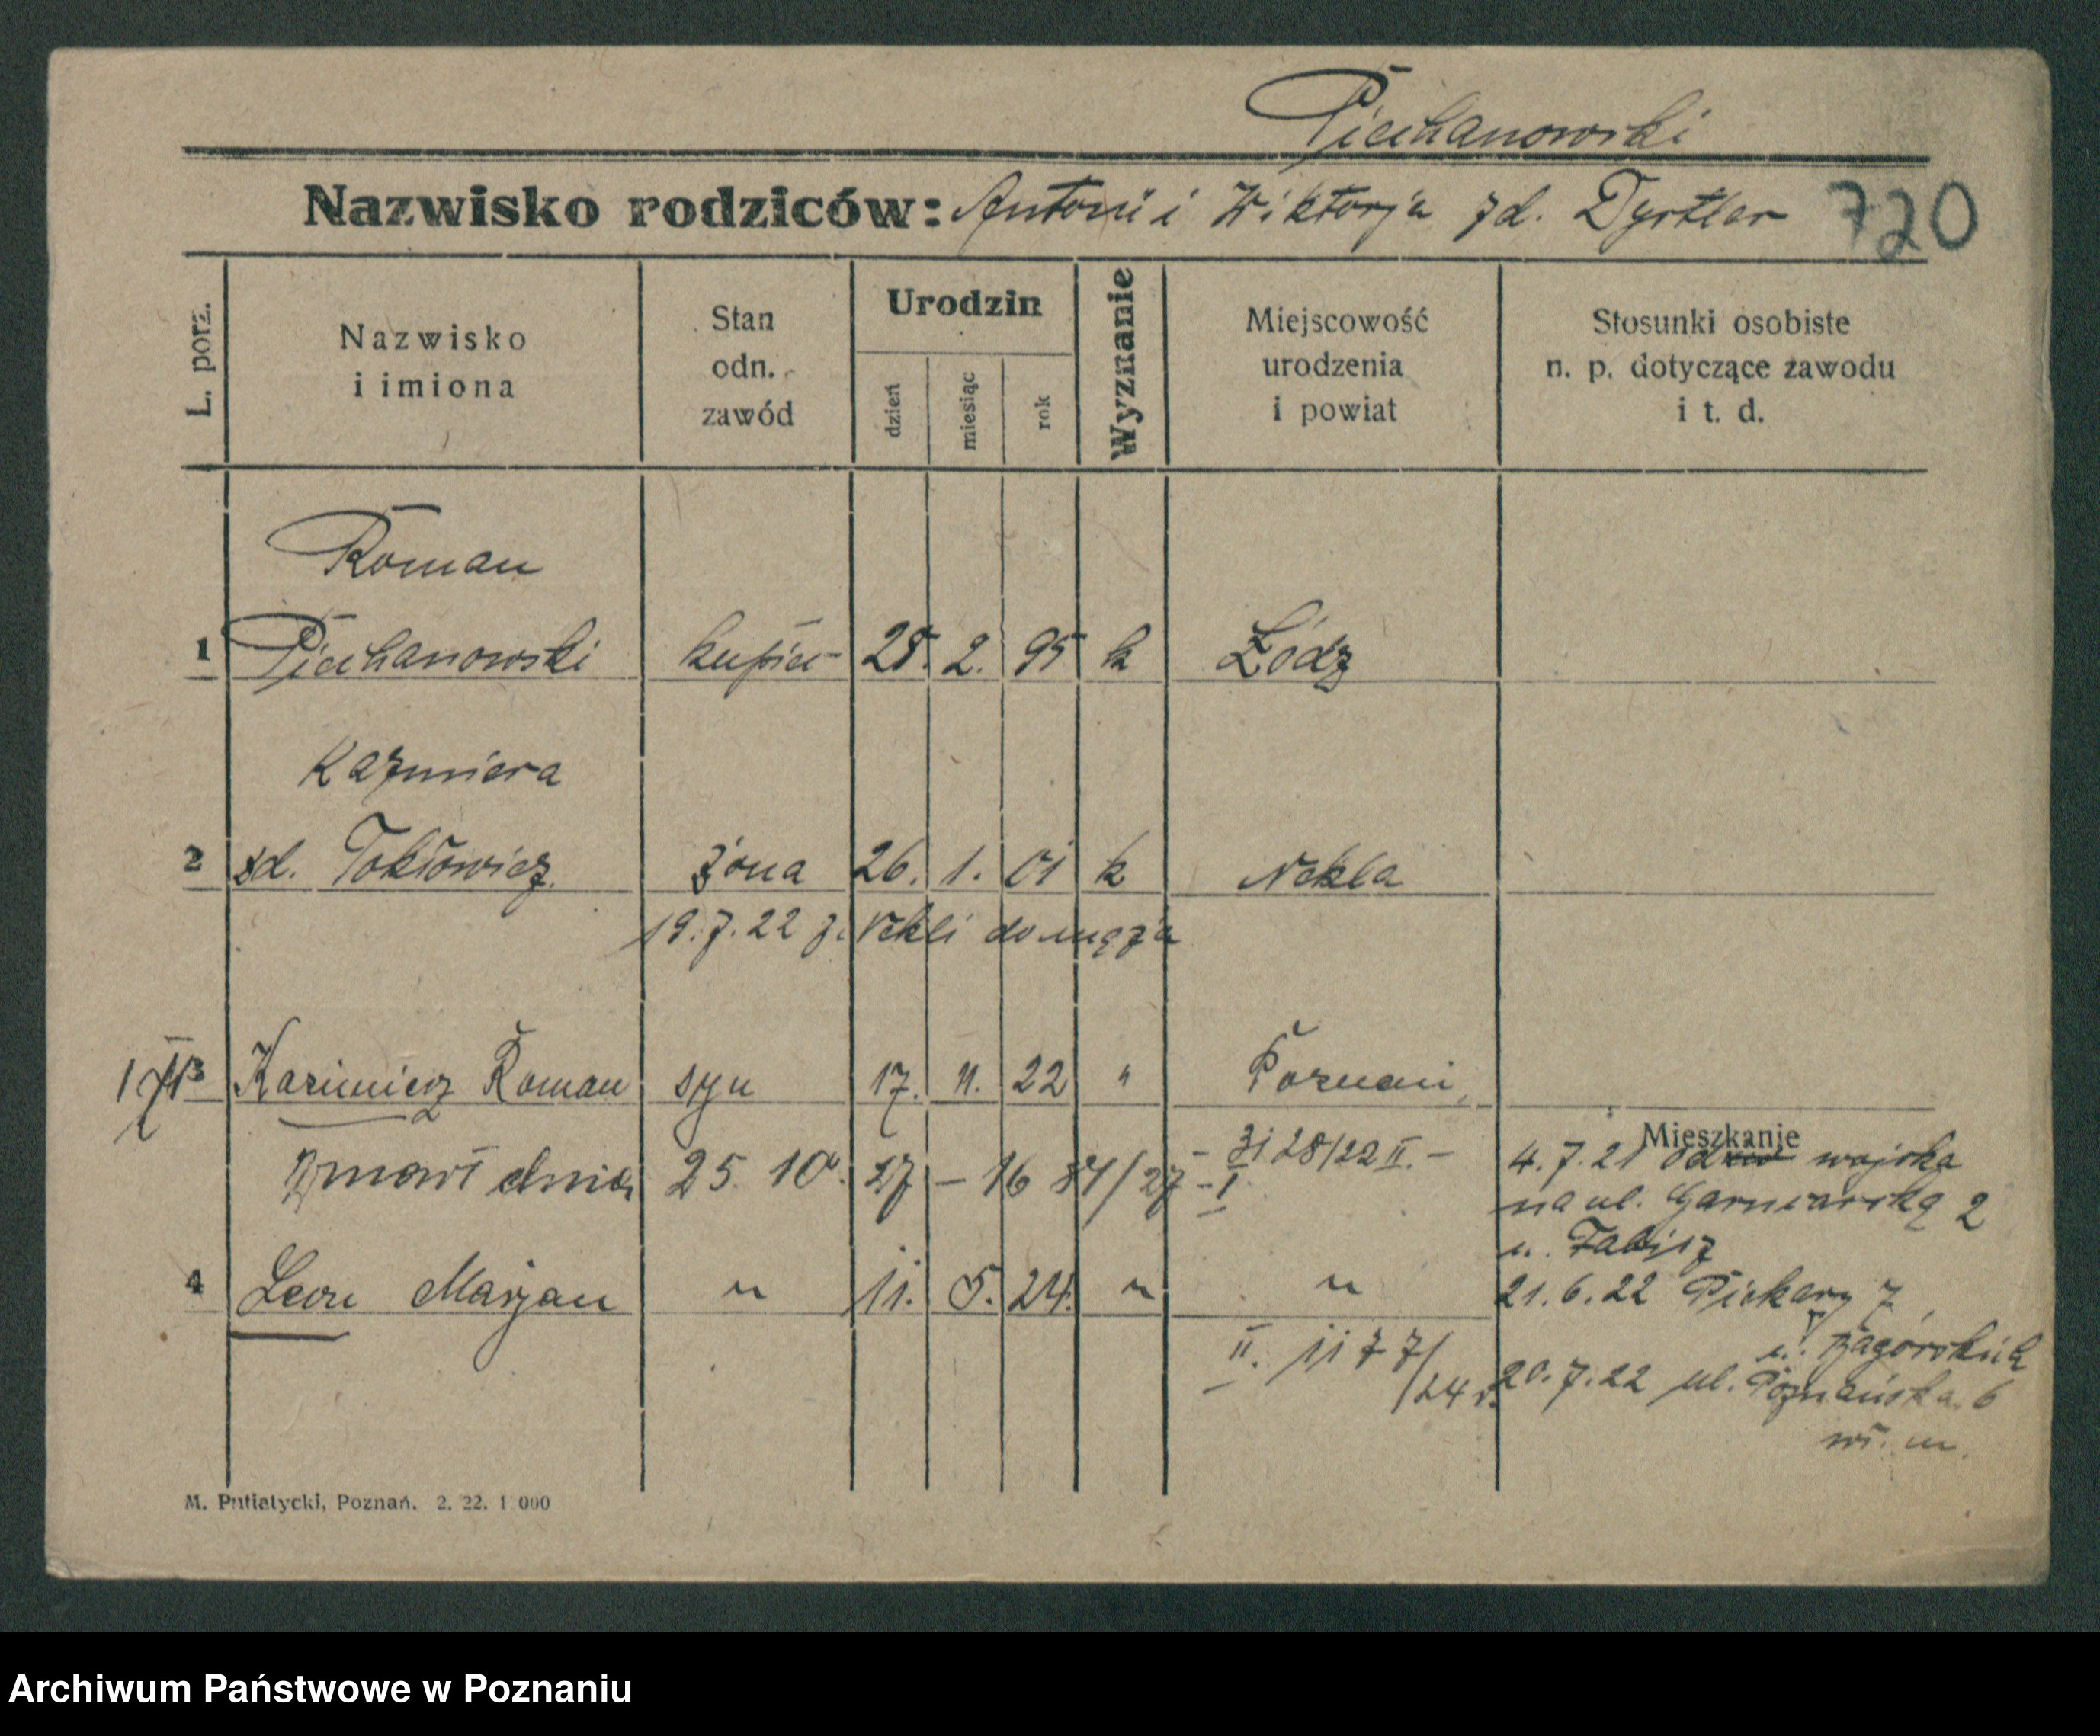 Piechanowski
Nazwisko rodziców: Antoni i Wiktorja zd. Dyrtler 720
L. porz.
Nazwisko i imiona
Stan odn. zawód
Urodzin
dzień miesiąc rok
Wyznanie
Miejscowość urodzenia i powiat
Stosunki osobiste n. p. dotyczące zawodu i t. d.
Roman
1 Piechanowski kupiec 2. 95 k Łódz
Kazmiera
2 zd. żona 26. 1. 01 k Nekla
19.7.22 z. Nekli do męża
3 Kazimierz Roman syn 17. 11. 22 " Poznań
Mieszkanie
zmarł dnia 25. 10. 27 - 16 84/27 - I
- 31 28/22 II. -
4 Leon Marjan " 11. 5. 24. " "
II. 11 77/24 r.
4.7.21 od wojska
na ul. Garncarską 2
u.
21.6.22 Piekary 7
u. Zagórskich
20.7.22 ul. Poznańska 6
wł. m.
M. Putiatycki, Poznań. 2. 22. 1 000
Archiwum Państwowe w Poznaniu